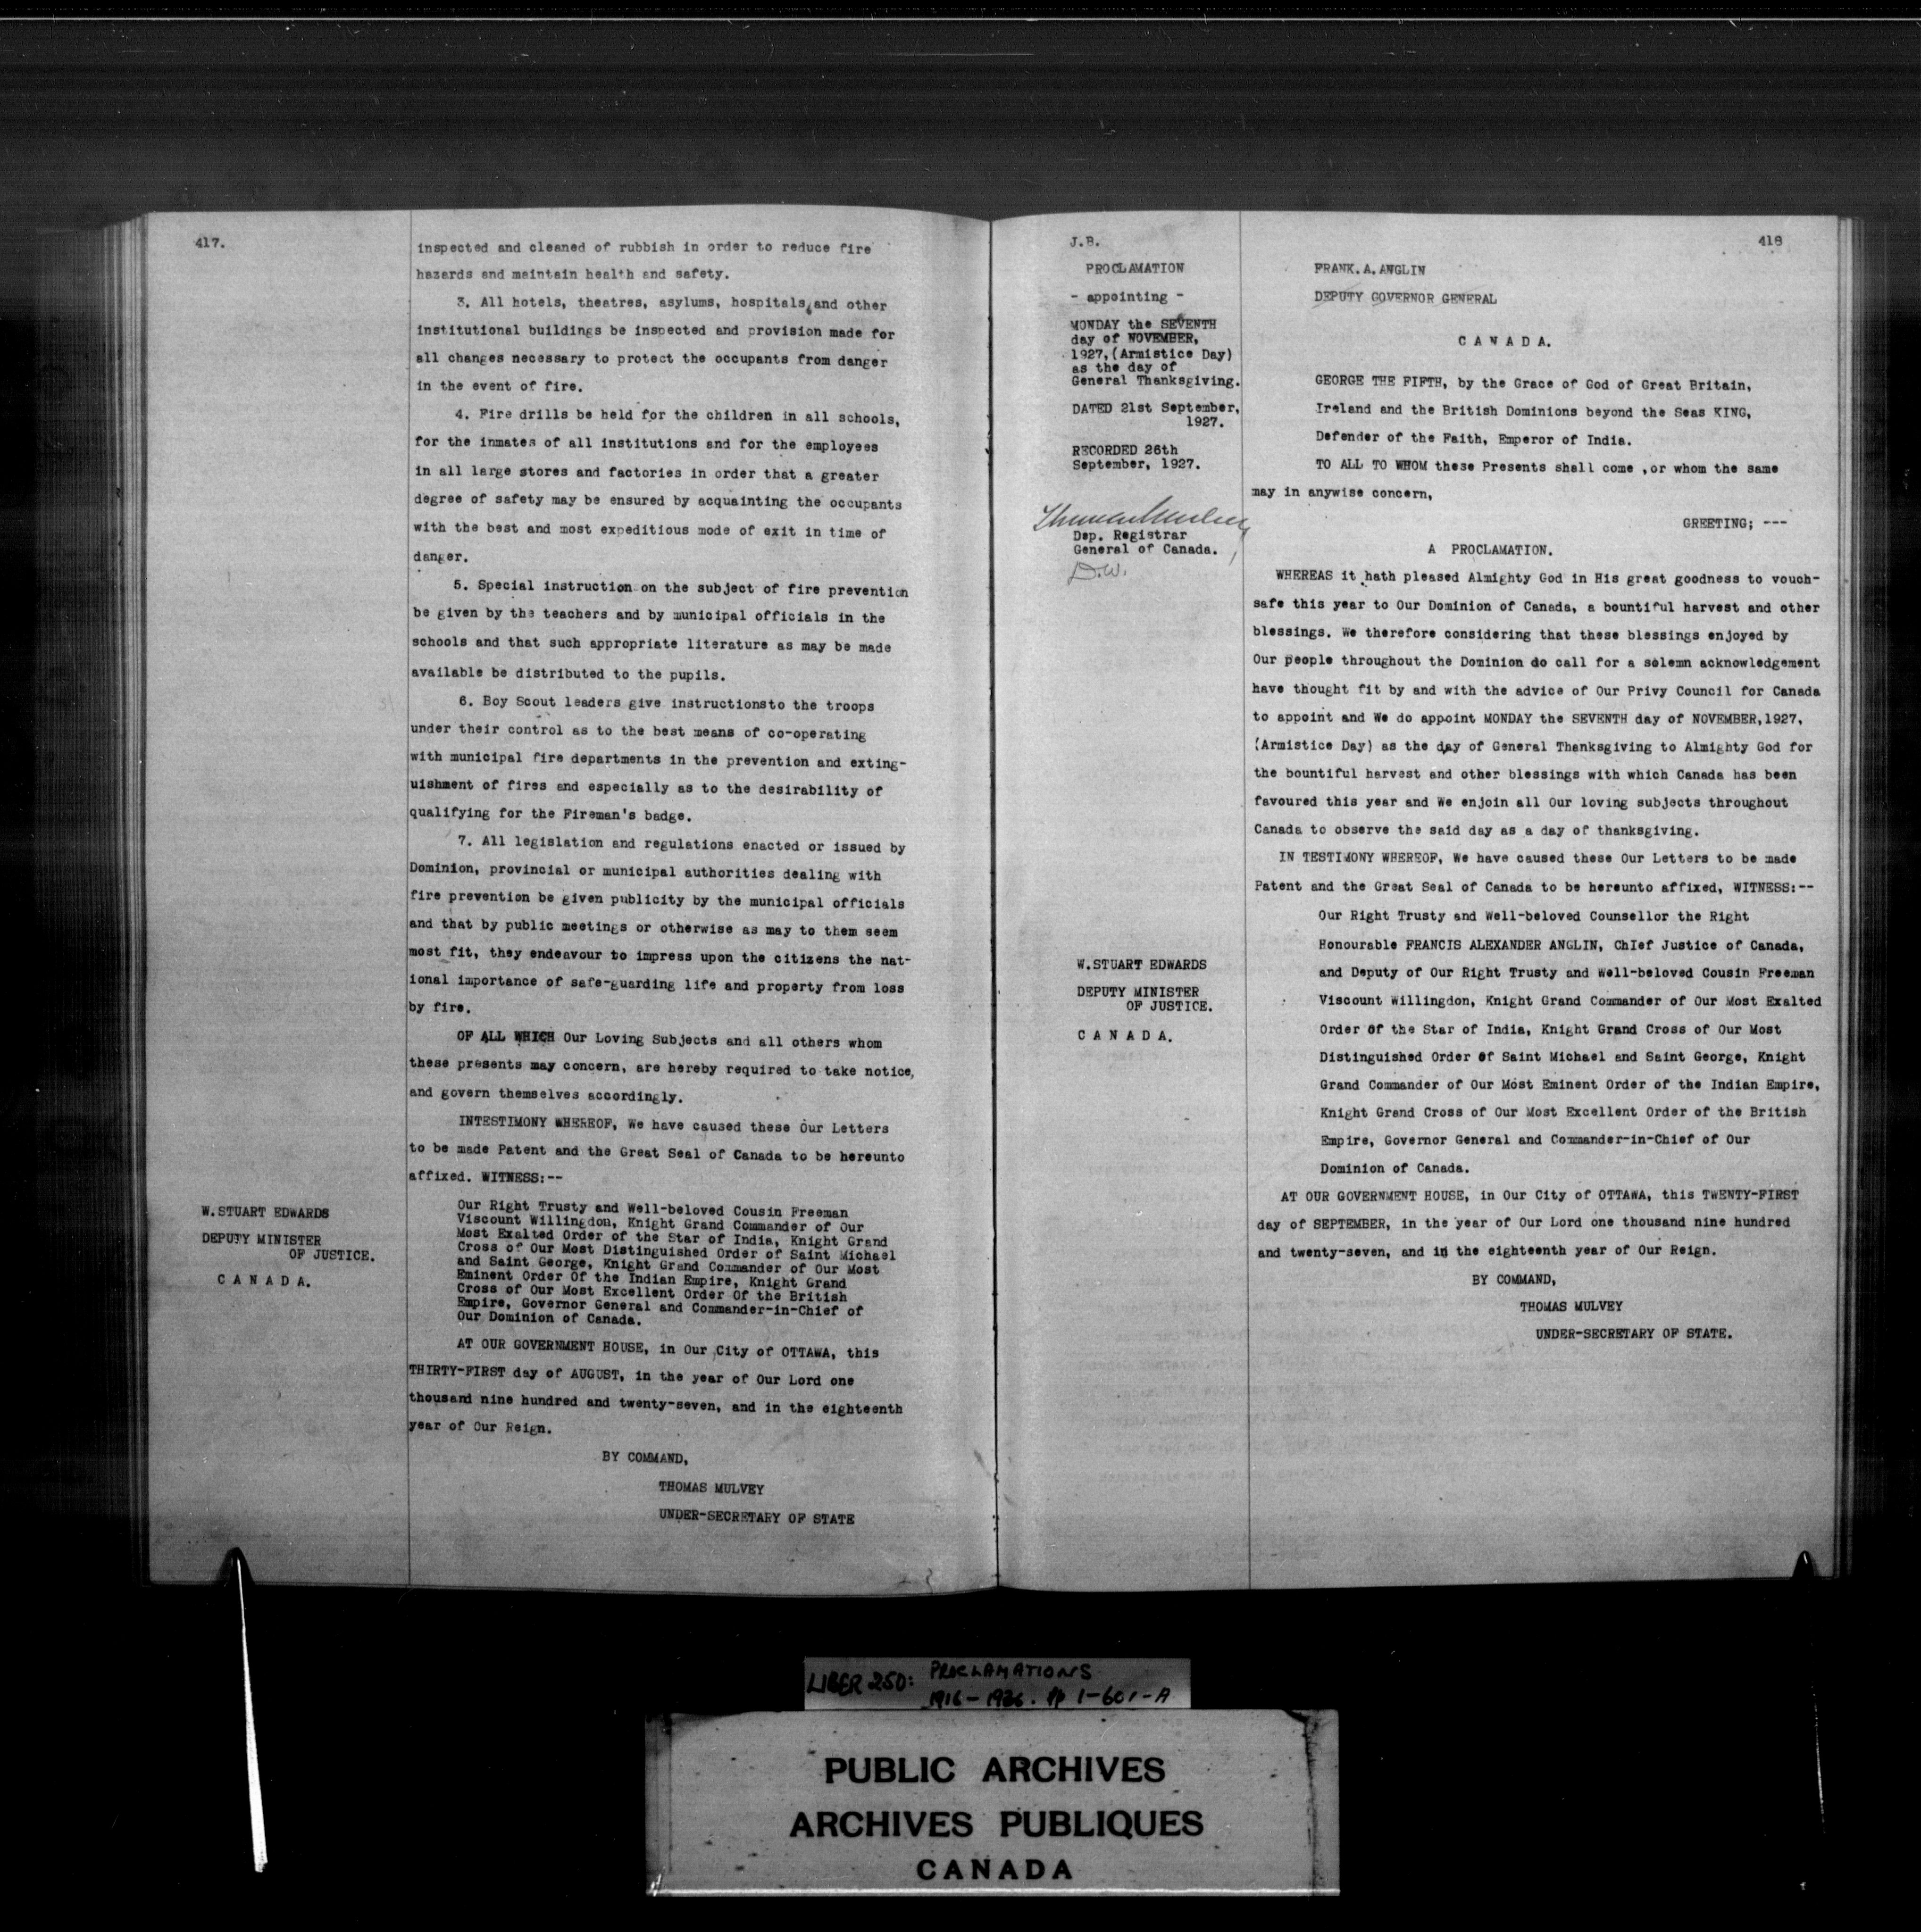 417.
inspected and cleaned of rubbish in order to reduce fire
hazards and maintain health and safety.
3. All hotels, theatres, asylums, hospitals, and other
institutional buildings be inspected and provision made for
all changes necessary to protect the occupants from danger
in the event of fire.
4. Fire drills be held for the children in all schools,
for the inmates of all institutions and for the employees
in all large stores and factories in order that a greater
degree of safety may be ensured by acquainting the occupants
with the best and most expeditious mode of exit in time of
danger.
5. Special instruction on the subject of fire prevention
be given by the teachers and by municipal officials in the
schools and that such appropriate literature as may be made
available be distributed to the pupils.
6. Boy Scout leaders give instructionsto the troops
under their control as to the best means of co-operating
with municipal fire departments in the prevention and exting-
uishment of fires and especially as to the desirability of
qualifying for the Fireman's badge.
7. All legislation and regulations enacted or issued by
Dominion, provincial or municipal authorities dealing with
fire prevention be given publicity by the municipal officials
and that by public meetings or otherwise as may to them seem
most fit, they endeavour to impress upon the citizens the nat-
ional importance of safe-guarding life and property from loss
by fire.
OF ALL WHICH Our Loving Subjects and all others whom
these presents may concern, are hereby required to take notice,
and govern themselves accordingly.
INTESTIMONY WHEREOF, We have caused these Our Letters
to be made Patent and the Great Seal of Canada to be hereunto
affixed. WITNESS:--
W.STUART EDWARDS
DEPUTY MINISTER
OF JUSTICE.
C A N A D A.
Our Right Trusty and Well-beloved Cousin Freeman
Viscount Willingdon, Knight Grand Commander of Our
Most Exalted Order of the Star of India, Knight Grand
Cross of Our Most Distinguished Order of Saint Michael
and Saint George, Knight Grand Commander of Our Most
Eminent Order Of the Indian Empire, Knight Grand
Cross of Our Most Excellent Order Of the British
Empire, Governor General and Commander-in-Chief of
Our Dominion of Canada.
AT OUR GOVERNMENT HOUSE, in Our City of OTTAWA, this
THIRTY-FIRST day of AUGUST, in the year of Our Lord one
thousand nine hundred and twenty-seven, and in the eighteenth
year of Our Reign.
BY COMMAND,
THOMAS MULVEY
UNDER-SECRETARY OF STATE
J.B.
418
PROCLAMATION
- appointing -
MONDAY the SEVENTH
day of NOVEMBER,
1927,(Armistice Day)
as the day of
General Thanksgiving.
DATED 21st September,
1927.
RECORDED 26th
September, 1927.
Thomas Mulvey
Dep. Registrar
General of Canada.
D.W.
FRANK.A.ANGLIN
DEPUTY GOVERNOR GENERAL
C A N A D A.
GEORGE THE FIFTH, by the Grace of God of Great Britain,
Ireland and the British Dominions beyond the Seas KING,
Defender of the Faith, Emperor of India.
TO ALL TO WHOM these Presents shall come ,or whom the same
may in anywise concern,
GREETING; ---
A PROCLAMATION.
WHEREAS it hath pleased Almighty God in His great goodness to vouch-
safe this year to Our Dominion of Canada, a bountiful harvest and other
blessings. We therefore considering that these blessings enjoyed by
Our people throughout the Dominion do call for a solemn acknowledgement
have thought fit by and with the advice of Our Privy Council for Canada
to appoint and We do appoint MONDAY the SEVENTH day of NOVEMBER,1927,
(Armistice Day) as the day of General Thanksgiving to Almighty God for
the bountiful harvest and other blessings with which Canada has been
favoured this year and We enjoin all Our loving subjects throughout
Canada to observe the said day as a day of thanksgiving.
IN TESTIMONY WHEREOF, We have caused these Our Letters to be made
Patent and the Great Seal of Canada to be hereunto affixed, WITNESS:--
W.STUART EDWARDS
DEPUTY MINISTER
OF JUSTICE.
C A N A D A.
Our Right Trusty and Well-beloved Counsellor the Right
Honourable FRANCIS ALEXANDER ANGLIN, ChIef Justice of Canada,
and Deputy of Our Right Trusty and Well-beloved Cousin Freeman
Viscount Willingdon, Knight Grand Commander of Our Most Exalted
Order Of the Star of India, Knight Grand Cross of Our Most
Distinguished Order Of Saint Michael and Saint George, Knight
Grand Commander of Our Most Eminent Order of the Indian Empire,
Knight Grand Cross of Our Most Excellent Order of the British
Empire, Governor General and Commander-in-Chief of Our
Dominion of Canada.
AT OUR GOVERNMENT HOUSE, in Our City of OTTAWA, this TWENTY-FIRST
day of SEPTEMBER, in the year of Our Lord one thousand nine hundred
and twenty-seven, and in the eighteenth year of Our Reign.
BY COMMAND,
THOMAS MULVEY
UNDER-SECRETARY OF STATE.
LIBER 250: PROCLAMATIONS
1916-1936. pp 1-601-A
PUBLIC ARCHIVES
ARCHIVES PUBLIQUES
CANADA